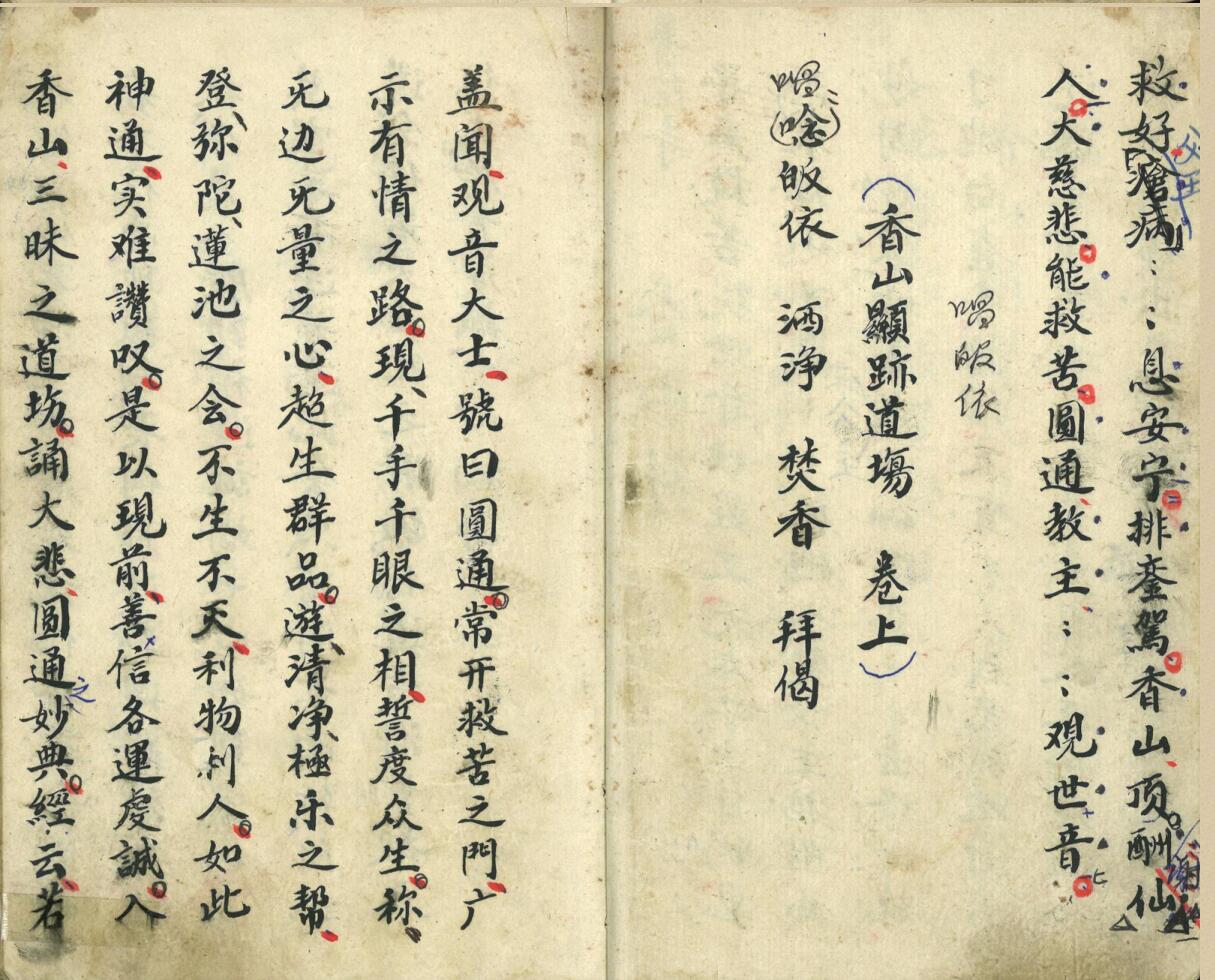 救好瘡病：：息安宁排銮駕香山顶酬仙
父王
谢
人大慈悲能救苦圓通教主：：观世音
唱皈依
（香山顯跡道塲 卷上）
唱（唸）皈依 洒净 焚香 拜偈
盖闻观音大士號曰圓通常开救苦之門广
示有情之路現千手千眼之相誓度众生称
旡边旡量之心超生群品遊清净極乐之幇
登弥陀蓮池之会不生不灭利物利人如此
神通实难讚叹是以現前善信各運虔誠入
香山三昧之道场誦大悲圆通之妙典經云若